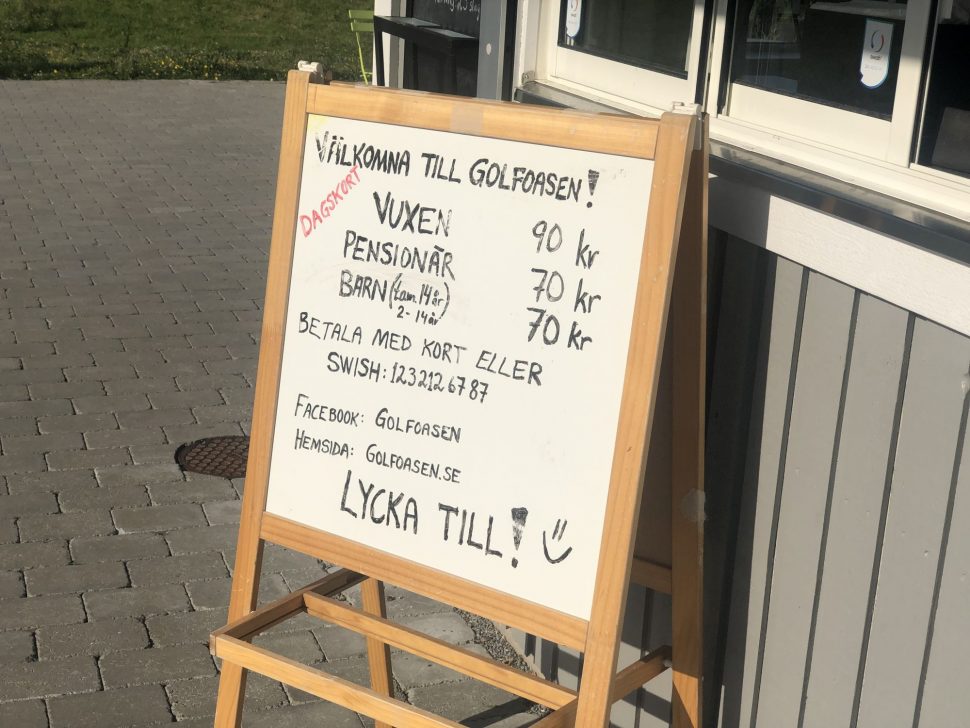 VÄLKOMNA TILL GOLFOASEN!
DAGSKORT
VUXEN 90 kr
PENSIONÄR 70 kr
BARN (t.o.m. 14 år) 70 kr
2-14 år
BETALA MED KORT ELLER
SWISH: 123 212 67 87
FACEBOOK: GOLFOASEN
HEMSIDA: GOLFOASEN.SE
LYCKA TILL!